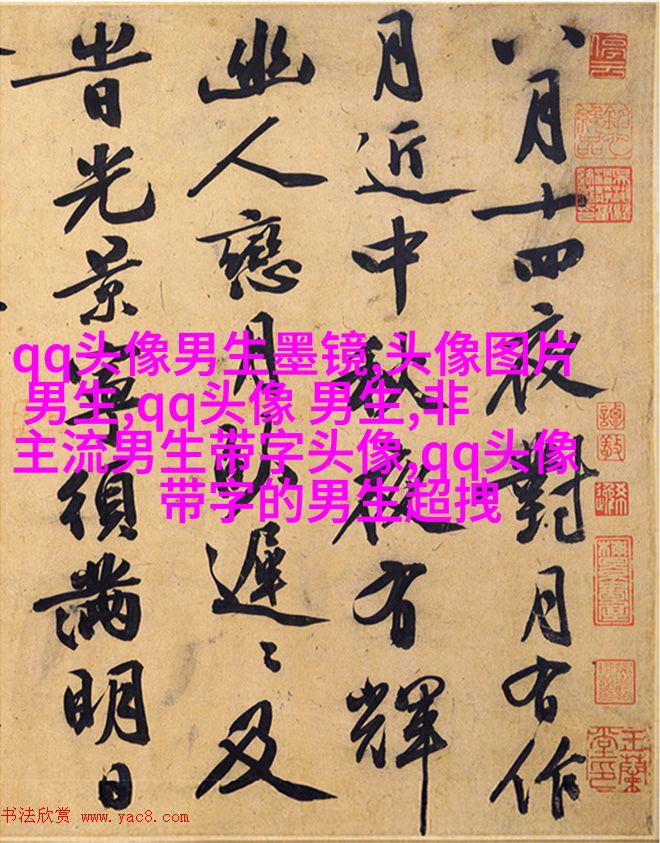 八月十四夜對月有作
月近中秋夜有輝
幽人戀月臥遲〻及
旹光景寧須滿明日
qq头像男生墨镜,头像图片
男生,qq头像 男生,非
主流男生带字头像,qq头像
带字的男生超拽
停雲
玉蘭堂印
书法欣赏 www.yac8.com